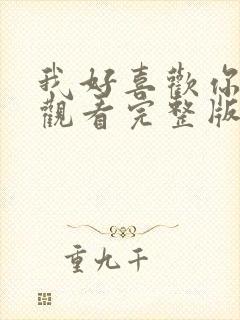 我好喜歡你
觀看完整版
重九千